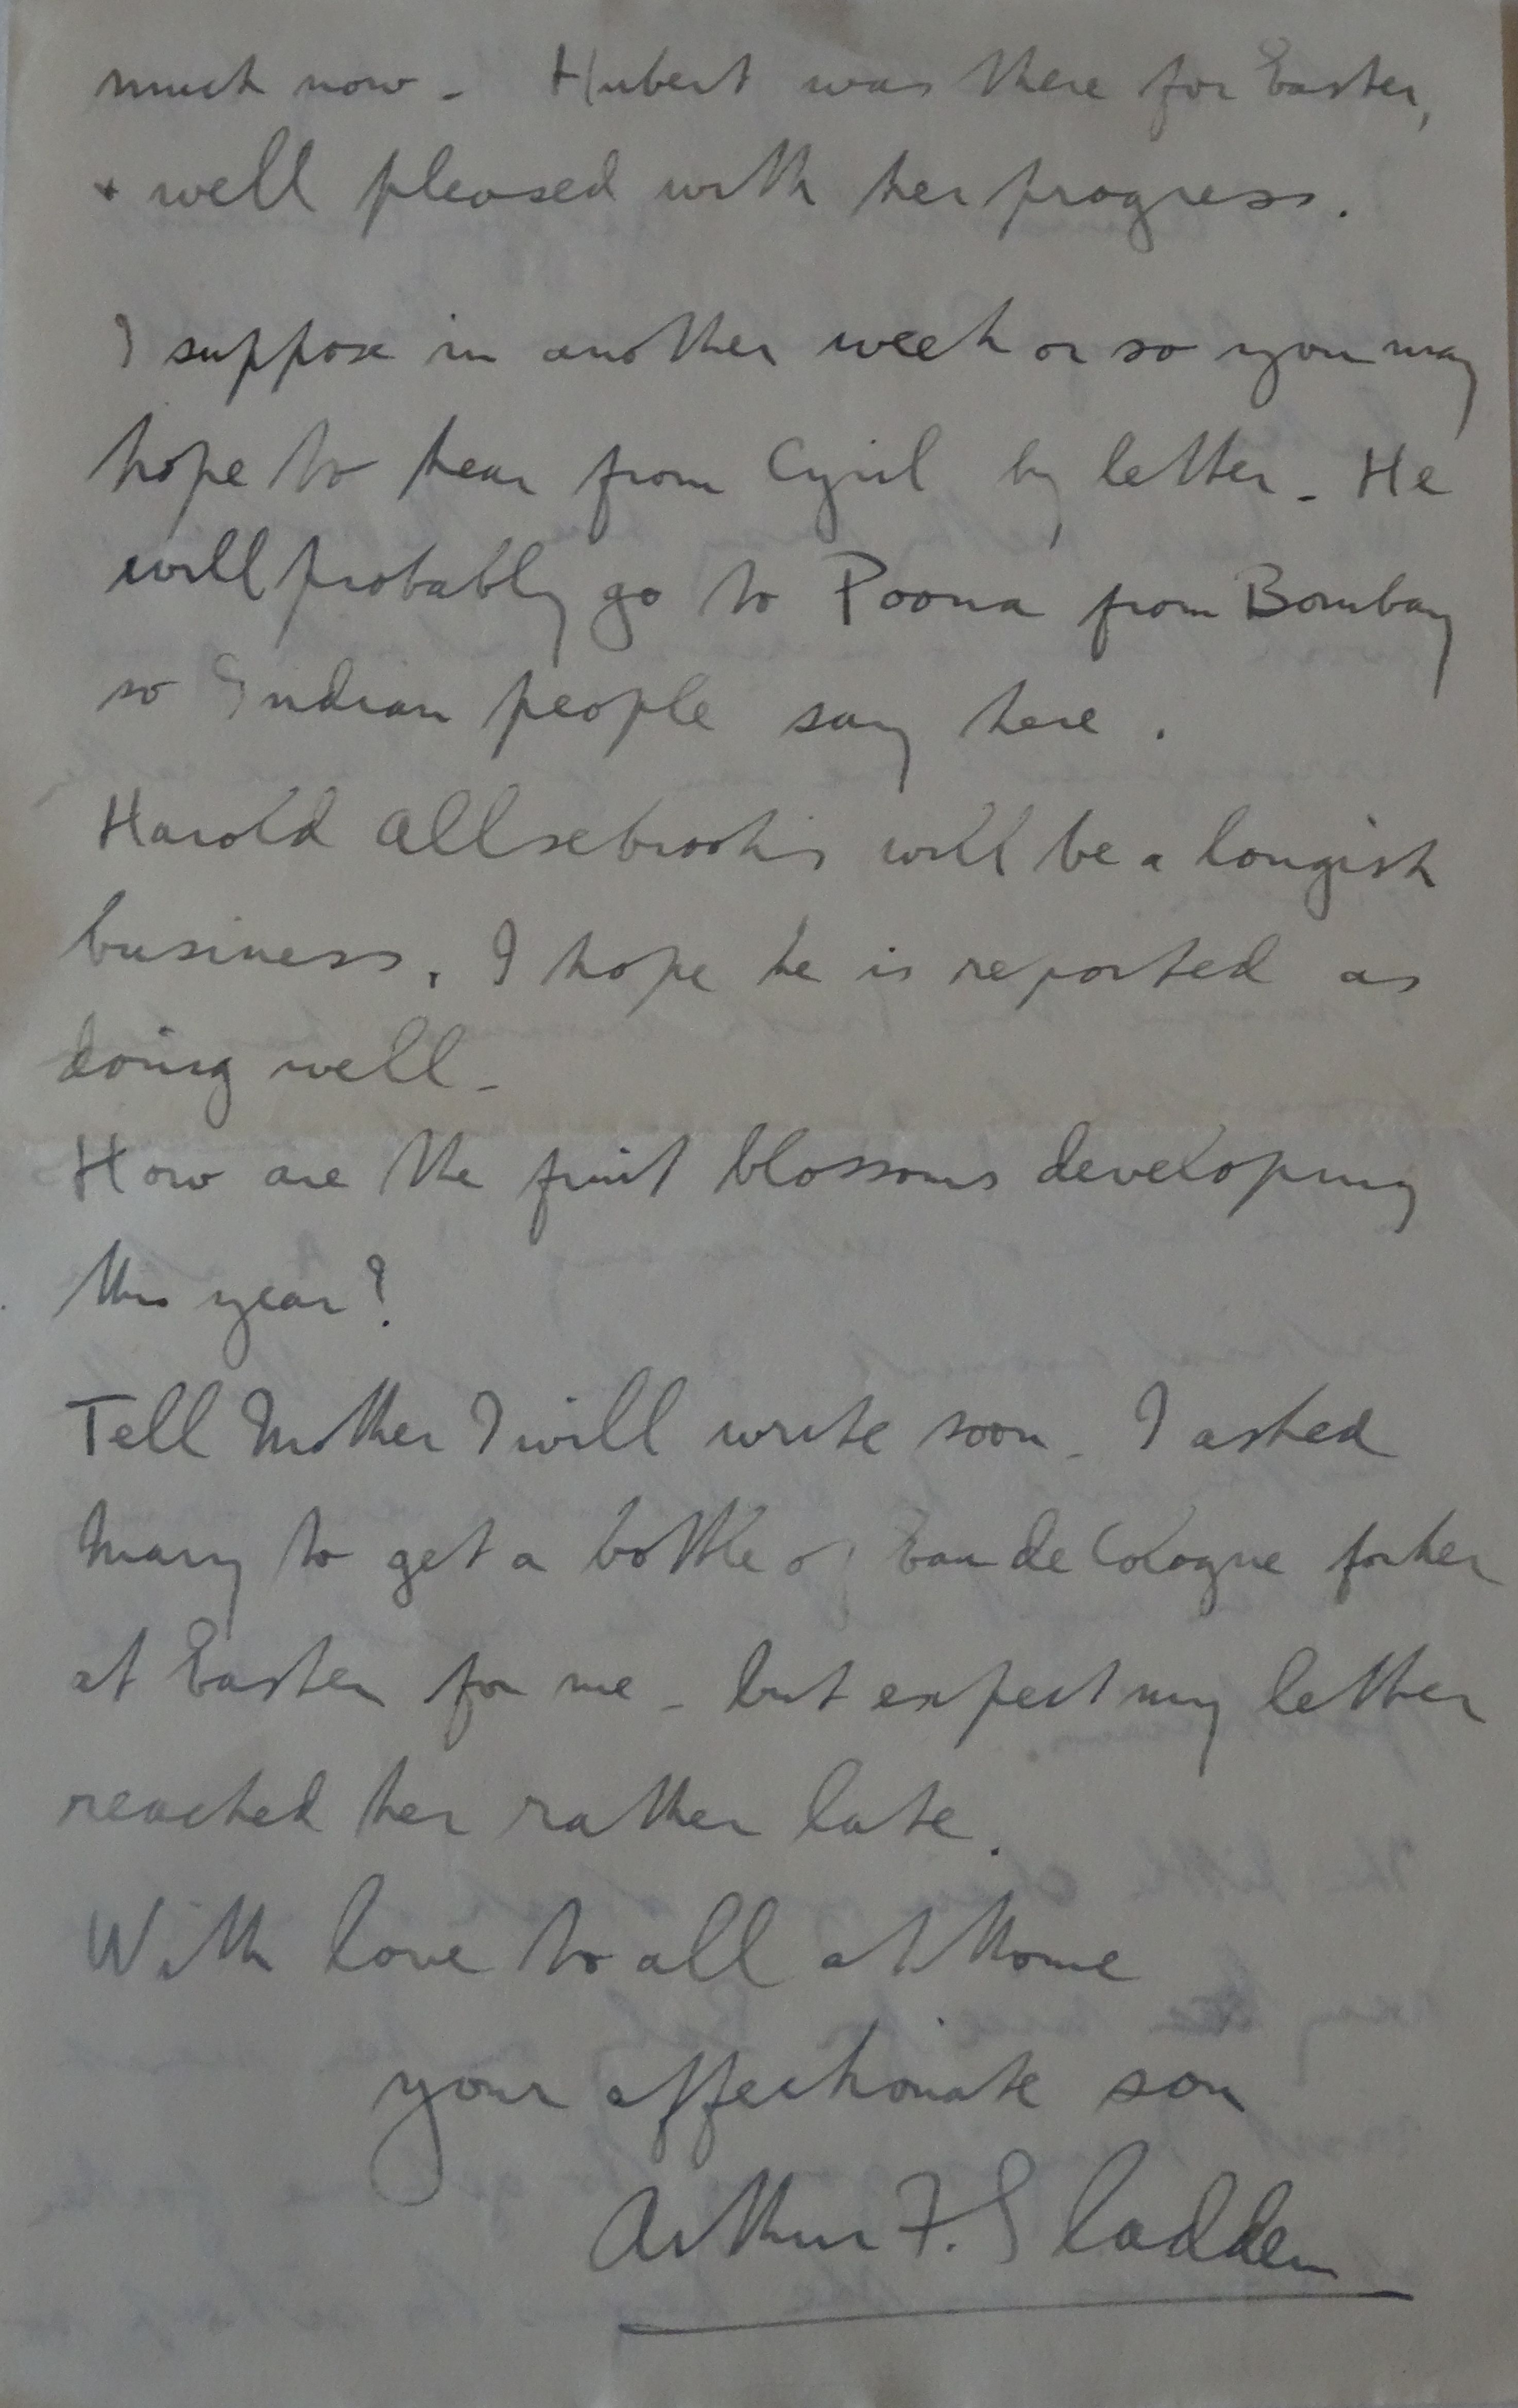 much now - Hubert was there for Easter,
+ well pleased with her progress.
I suppose in another week or so you may
hope to hear from Cyril by letter - He
will probably go to Poona from Bombay
so Indian people say here.
Harold Allsebrook's will be a longish
business. I hope he is reported as
doing well -
How are the fruit blossoms developing
this year?
Tell Mother I will write soon - I asked
Mary to get a bottle of Eau de Cologne for her
at Easter for me - but expect my letter
reached her rather late.
With love to all at Home
your affectionate son
Arthur F. Sladden